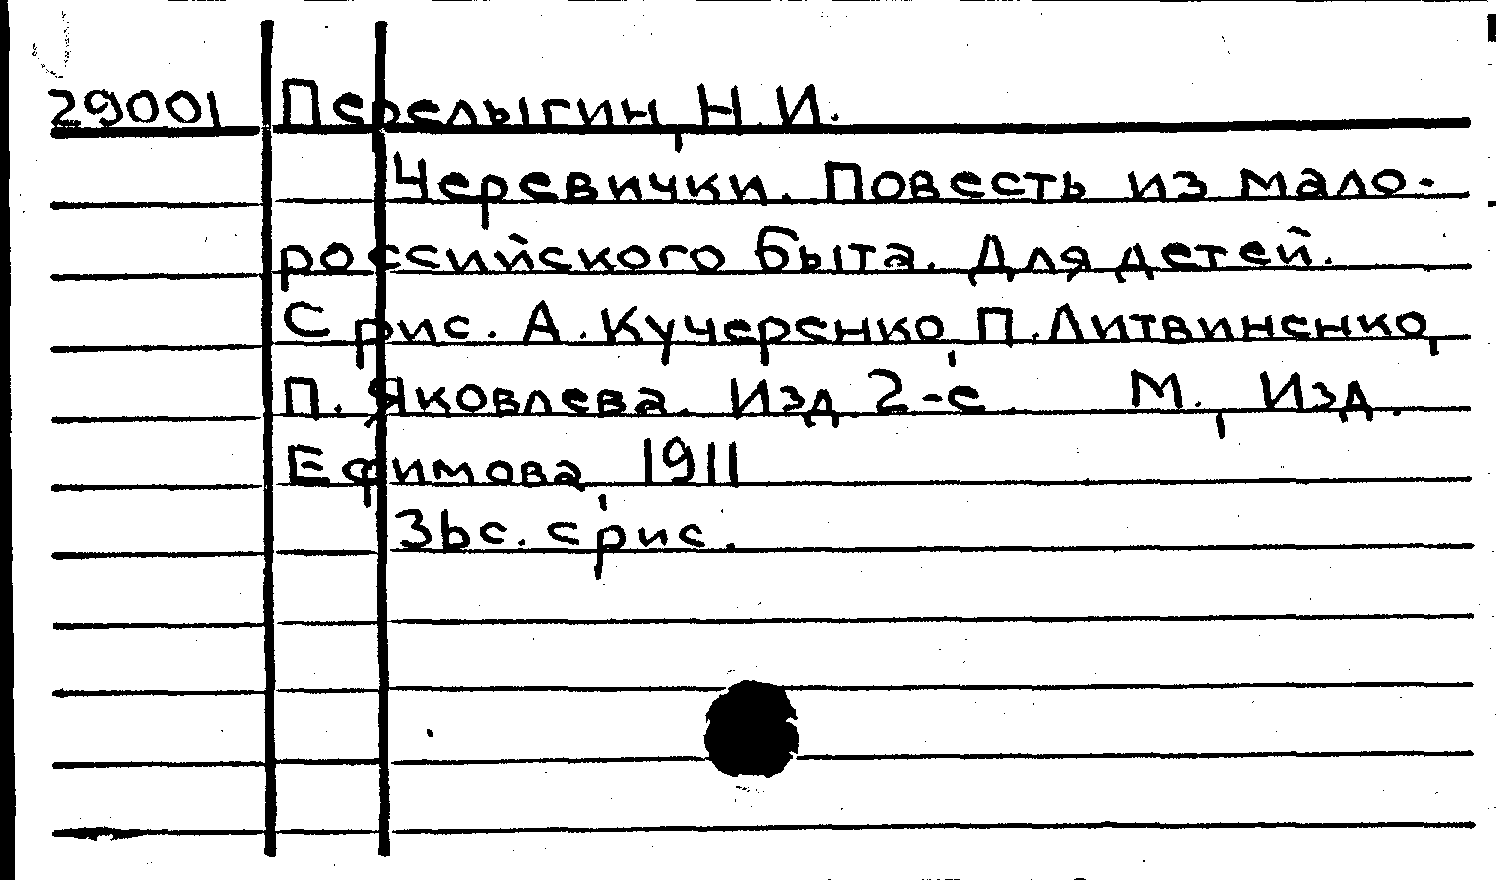 29001 Перелыгин, Н.И.
Черевички. Повесть из мало-
российского быта. Для детей.
С рис. А. Кучеренко, П. Литвиненко,
П. Яковлева. Изд. 2-е. М., Изд.
Ефимова, 1911
36с. с рис.